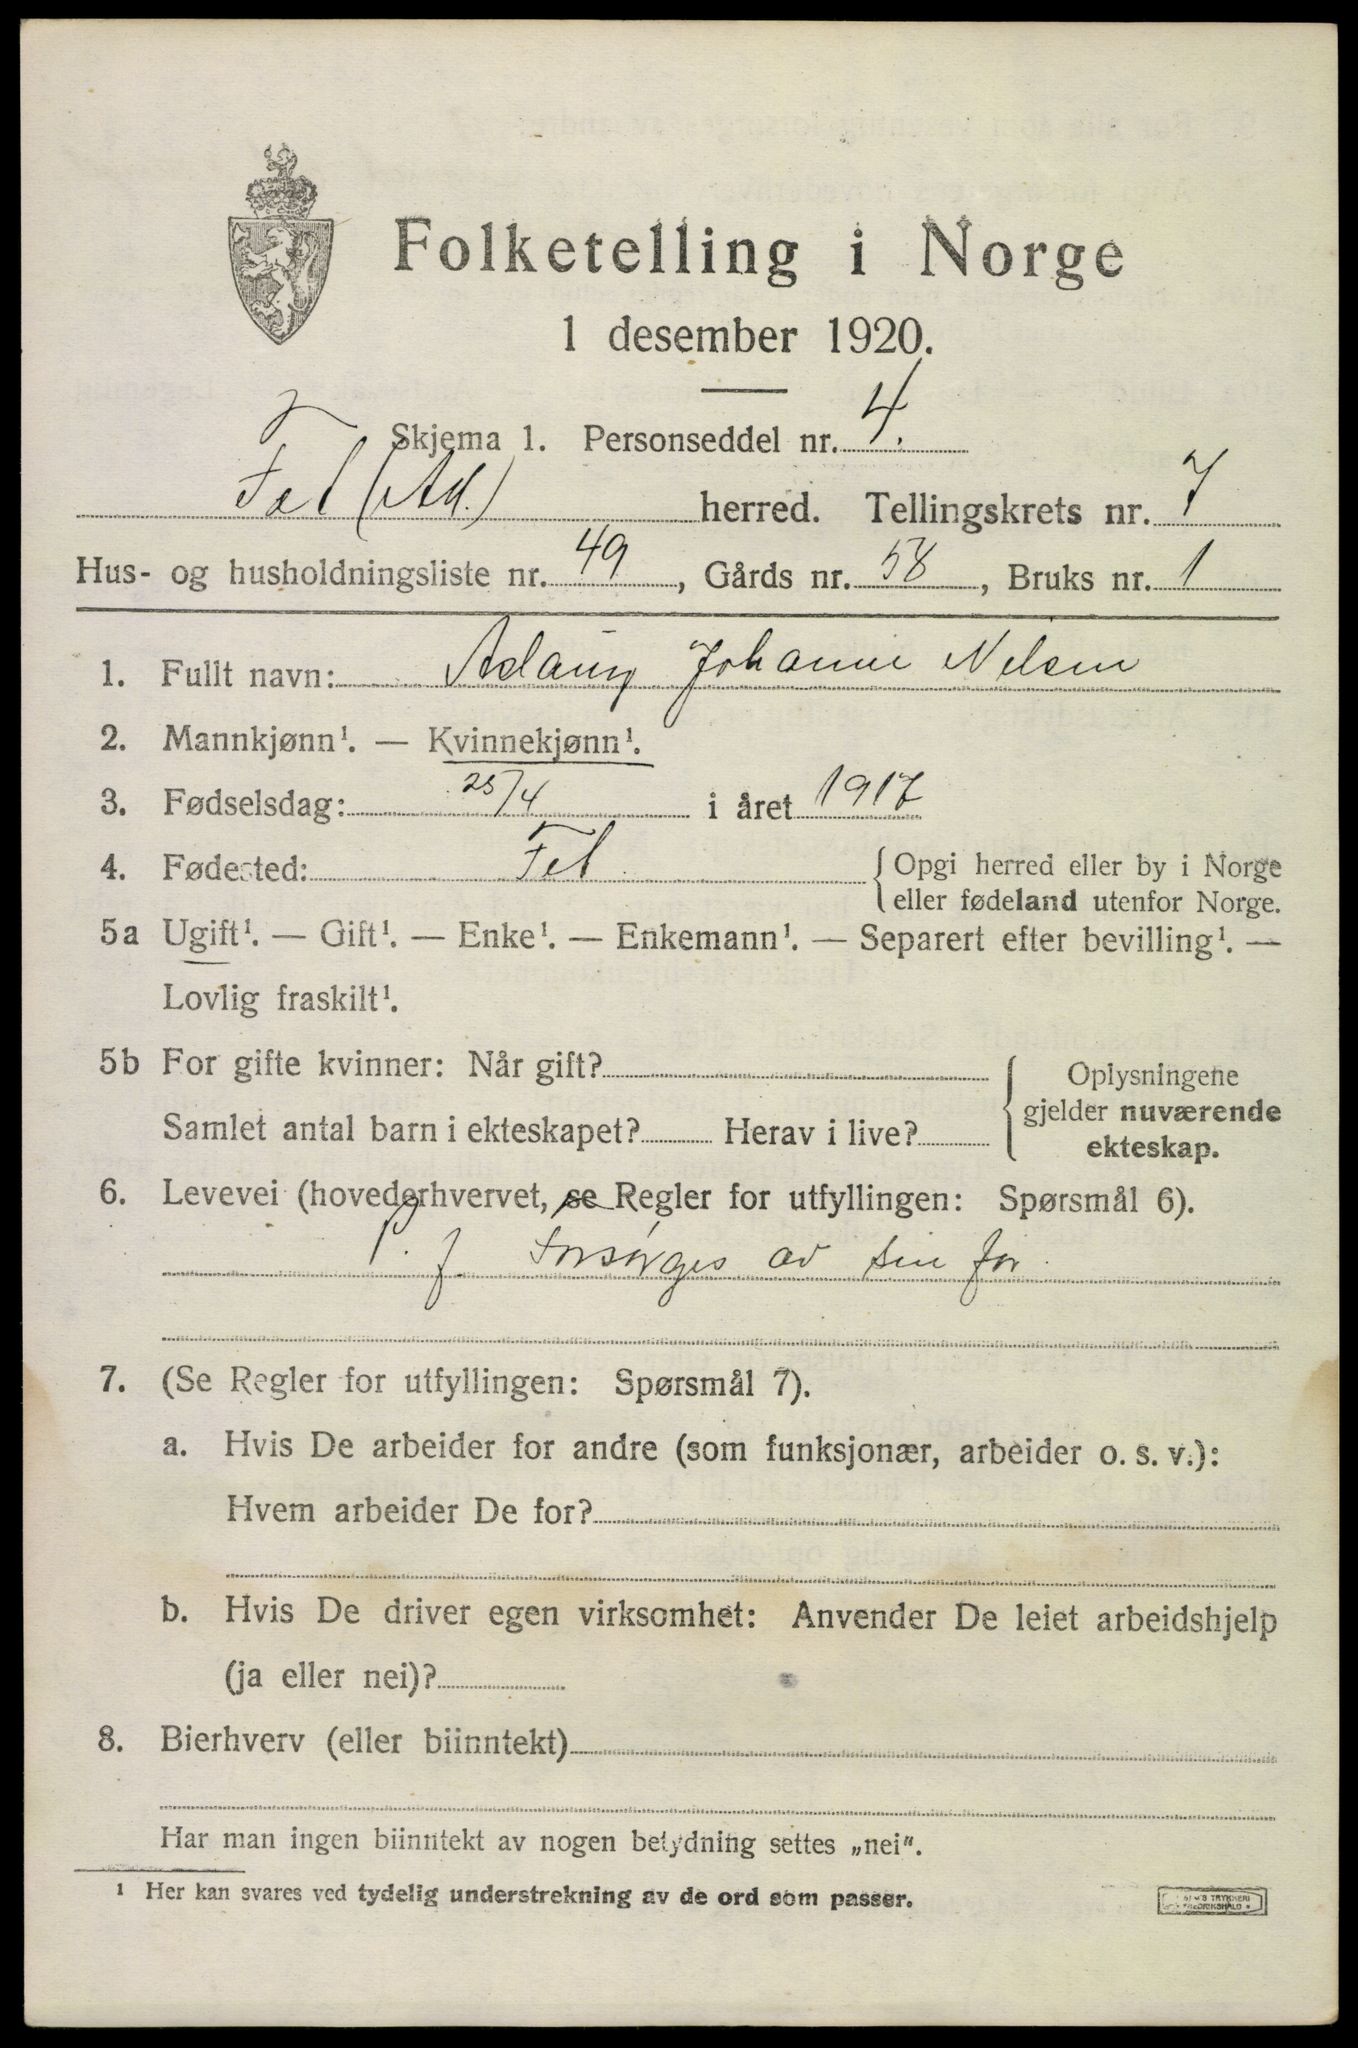 Folketelling i Norge
1 desember 1920.
Skjema 1. Personseddel nr. 4.
Fet (Ak.) herred. Tellingskrets nr. 7
Hus- og husholdningsliste nr. 49, Gårds nr. 58, Bruks nr. 1
1. Fullt navn: Aslaug Johanne Nilsen
2. Mannkjønn¹. — Kvinnekjønn¹.
3. Fødselsdag: 25/4 i året 1917
4. Fødested: Fet {Opgi herred eller by i Norge
eller fødeland utenfor Norge.
5a Ugift¹. — Gift¹. — Enke¹. — Enkemann¹. — Separert efter bevilling¹. —
Lovlig fraskilt¹.
5b For gifte kvinner: Når gift?
Samlet antal barn i ekteskapet? Herav i live?
{Oplysningene
gjelder nuværende
ekteskap.
6. Levevei (hovederhvervet, se Regler for utfyllingen: Spørsmål 6).
P. f Forsørges av sin far
7. (Se Regler for utfyllingen: Spørsmål 7).
a. Hvis De arbeider for andre (som funksjonær, arbeider o. s. v.):
Hvem arbeider De for?
b. Hvis De driver egen virksomhet: Anvender De leiet arbeidshjelp
(ja eller nei)?
8. Bierhverv (eller biinntekt)
Har man ingen biinntekt av nogen betydning settes „nei“.
¹ Her kan svares ved tydelig understrekning av de ord som passer.
TRYKKERI
FREDRIKSHALD